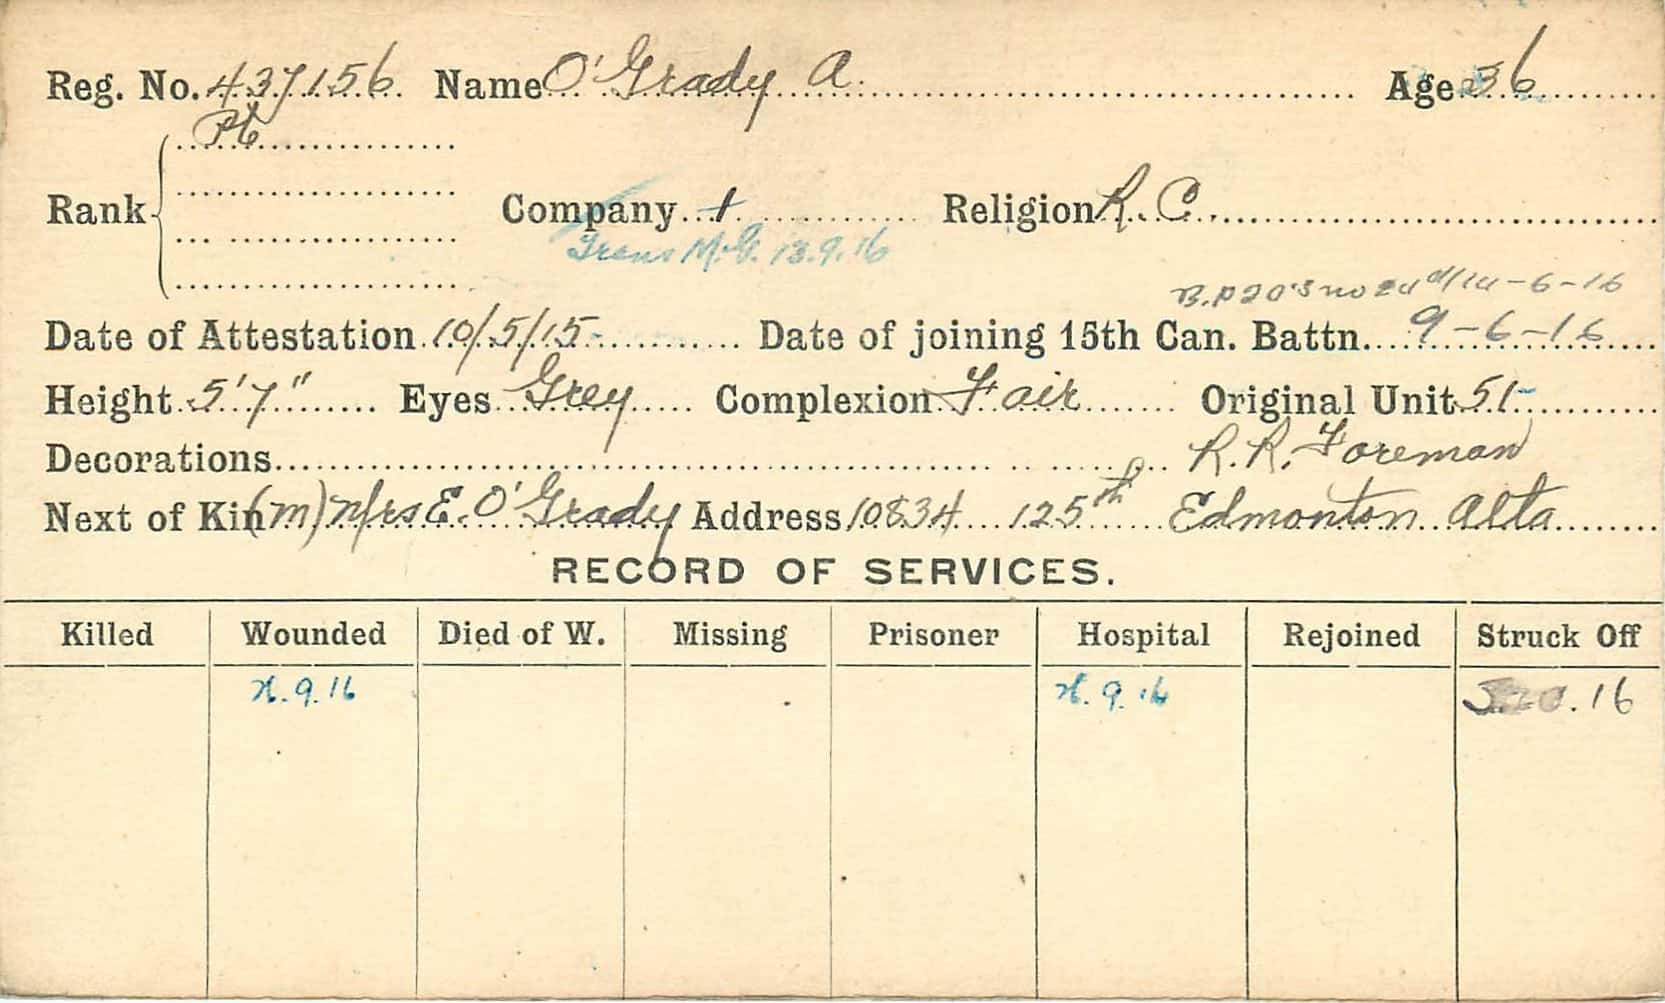 Reg. No. 437156 Name O'Grady A. Age 36
Pte
Rank Company 1 Religion R. C.
Trans M.G. 13.9.16
B. P 20's no 14-6-16
Date of Attestation 10/5/15 Date of joining 15th Can. Battn. 9-6-16
Height 5'7" Eyes Grey Complexion Fair Original Unit 51
Decorations R. R. Foreman
Next of Kin (m) Mrs E. O'Grady Address 10834 125th Edmonton Alta
RECORD OF SERVICES.
Killed Wounded Died of W. Missing Prisoner Hospital Rejoined Struck Off
9.16 9.16 16